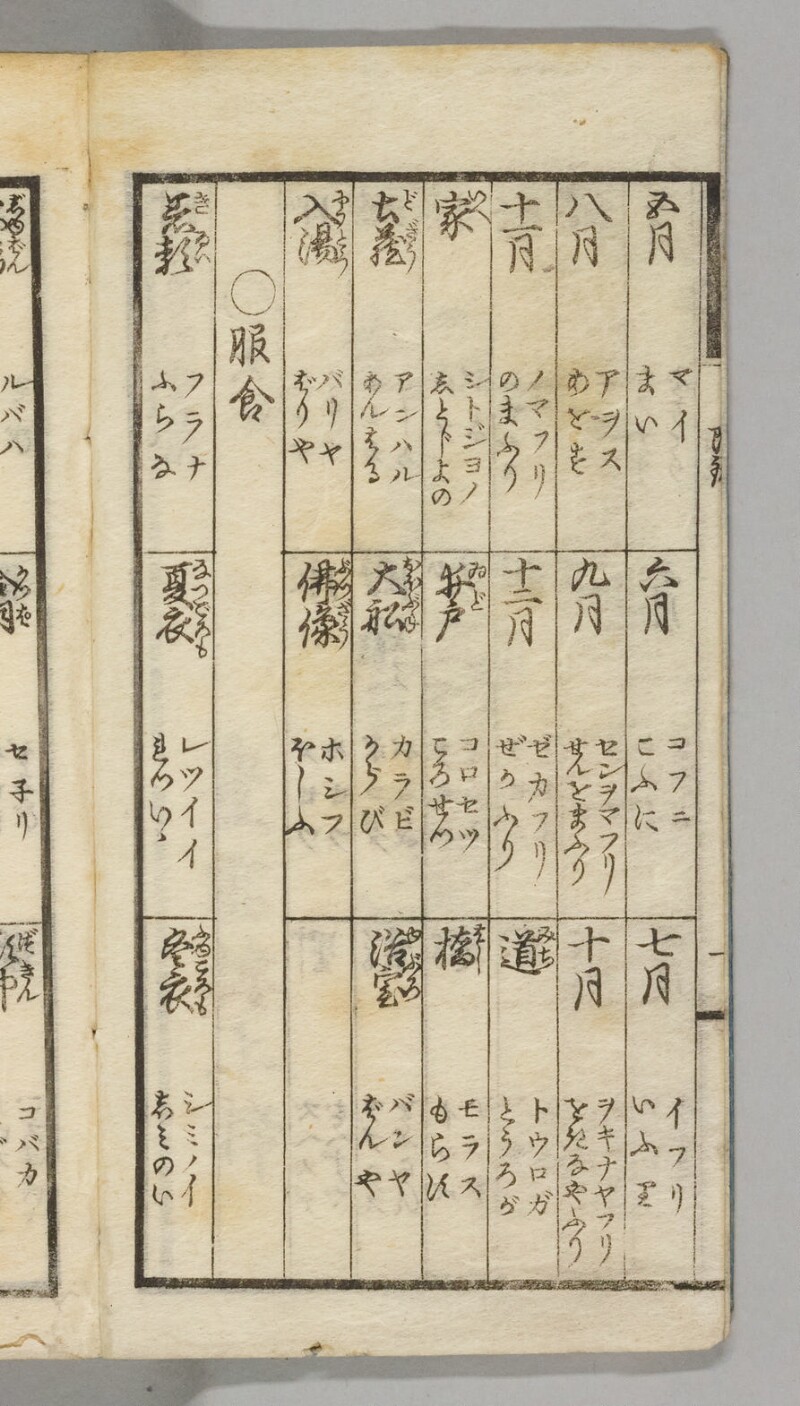 五月
マイ
まい
六月
コフニ
こふに
七月
イフリ
いふり
八月
アヲス
あをす
九月
センヲマフリ
せんをまふり
十月
ヲキナヤフリ
をきなやふり
十一月
ノマフリ
のまふり
十二月
ゼカフリ
ぜかふり
道
みち
トウロガ
とうろが
家
いへ
シトジヨノ
井戸
ゐど
コロセツ
ころせつ
橋
はし
モラス
もらす
土蔵
どざう
アンハル
あんはる
大船
おほぶね
カラビ
からび
浴室
バンヤ
ばんや
入湯
バリヤ
ばりや
佛像
ぶつざう
ホシフ
ほしふ
○服食
き
フラナ
ふらな
夏衣
なつごろも
レツイイ
れついゝ
冬衣
ふゆころも
シミノイ
しみのい
ルバハ
セ子リ
づきん
コバカ
一